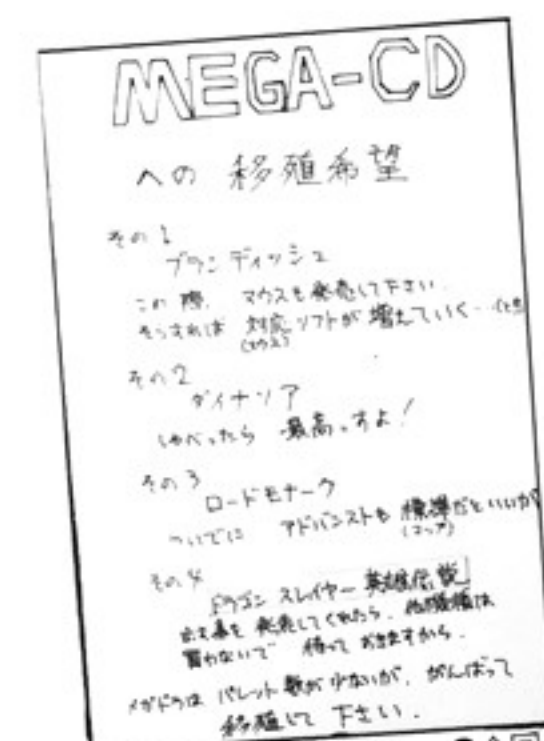 MEGA-CD
への 移殖希望
その1
ブランディッシュ
この際、マウスも発売して下さい。
そうすれば 対応ソフトが増えていく…
(マウス)
その2
ダイナソア
しゃべったら 最高っすよ!
その3
ロードモナーク
ついでに アドバンストも 標準だといいが
(マップ)
その4
ドラゴンスレイヤー 英雄伝説
発売してくれたら、他機種は
買わないで 待って おきますから。
メガドラは パレット数が少ないが、がんばって
移殖して 下さい.